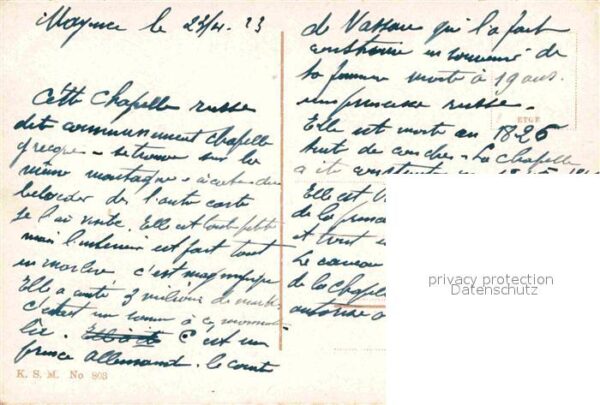 Mayence le 23/4. 23
Cette chapelle russe
dite communément chapelle
grecque - se trouve sur la
même montagne - à côté du
belvéder de l'autre carte
Je l'ai visité. Elle est toute petite
mais l'intérieur est fort tout
en marbre c'est magnifique
Elle a coûté 3 millions de mark.
c'était un
C'est un
prince Allemand, le comte
K. S. M. No 803
de Nassau qui l'a fait
construire en souvenir de
sa femme morte à 19 ans.
une princesse russe.
Elle est morte en 1826
de couches - La chapelle
a été construite en
Elle est
de la
et tout
Le caveau
de la chapelle
privacy protection
Datenschutz